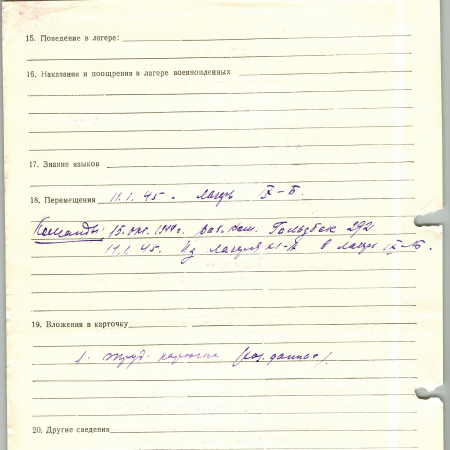 15. Поведение в лагере:
16. Наказания и поощрения в лагере военнопленных
17. Знание языков
18. Перемещения 11.1.45 - лагерь IX-Б
Команды: 15. окт. 1944 г. раб. ком. Гольдбек 292
11.1.45. Из лагеря XI-А в лагерь IX-Б.
19. Вложения в карточку
1. труд. карточка
20. Другие сведения